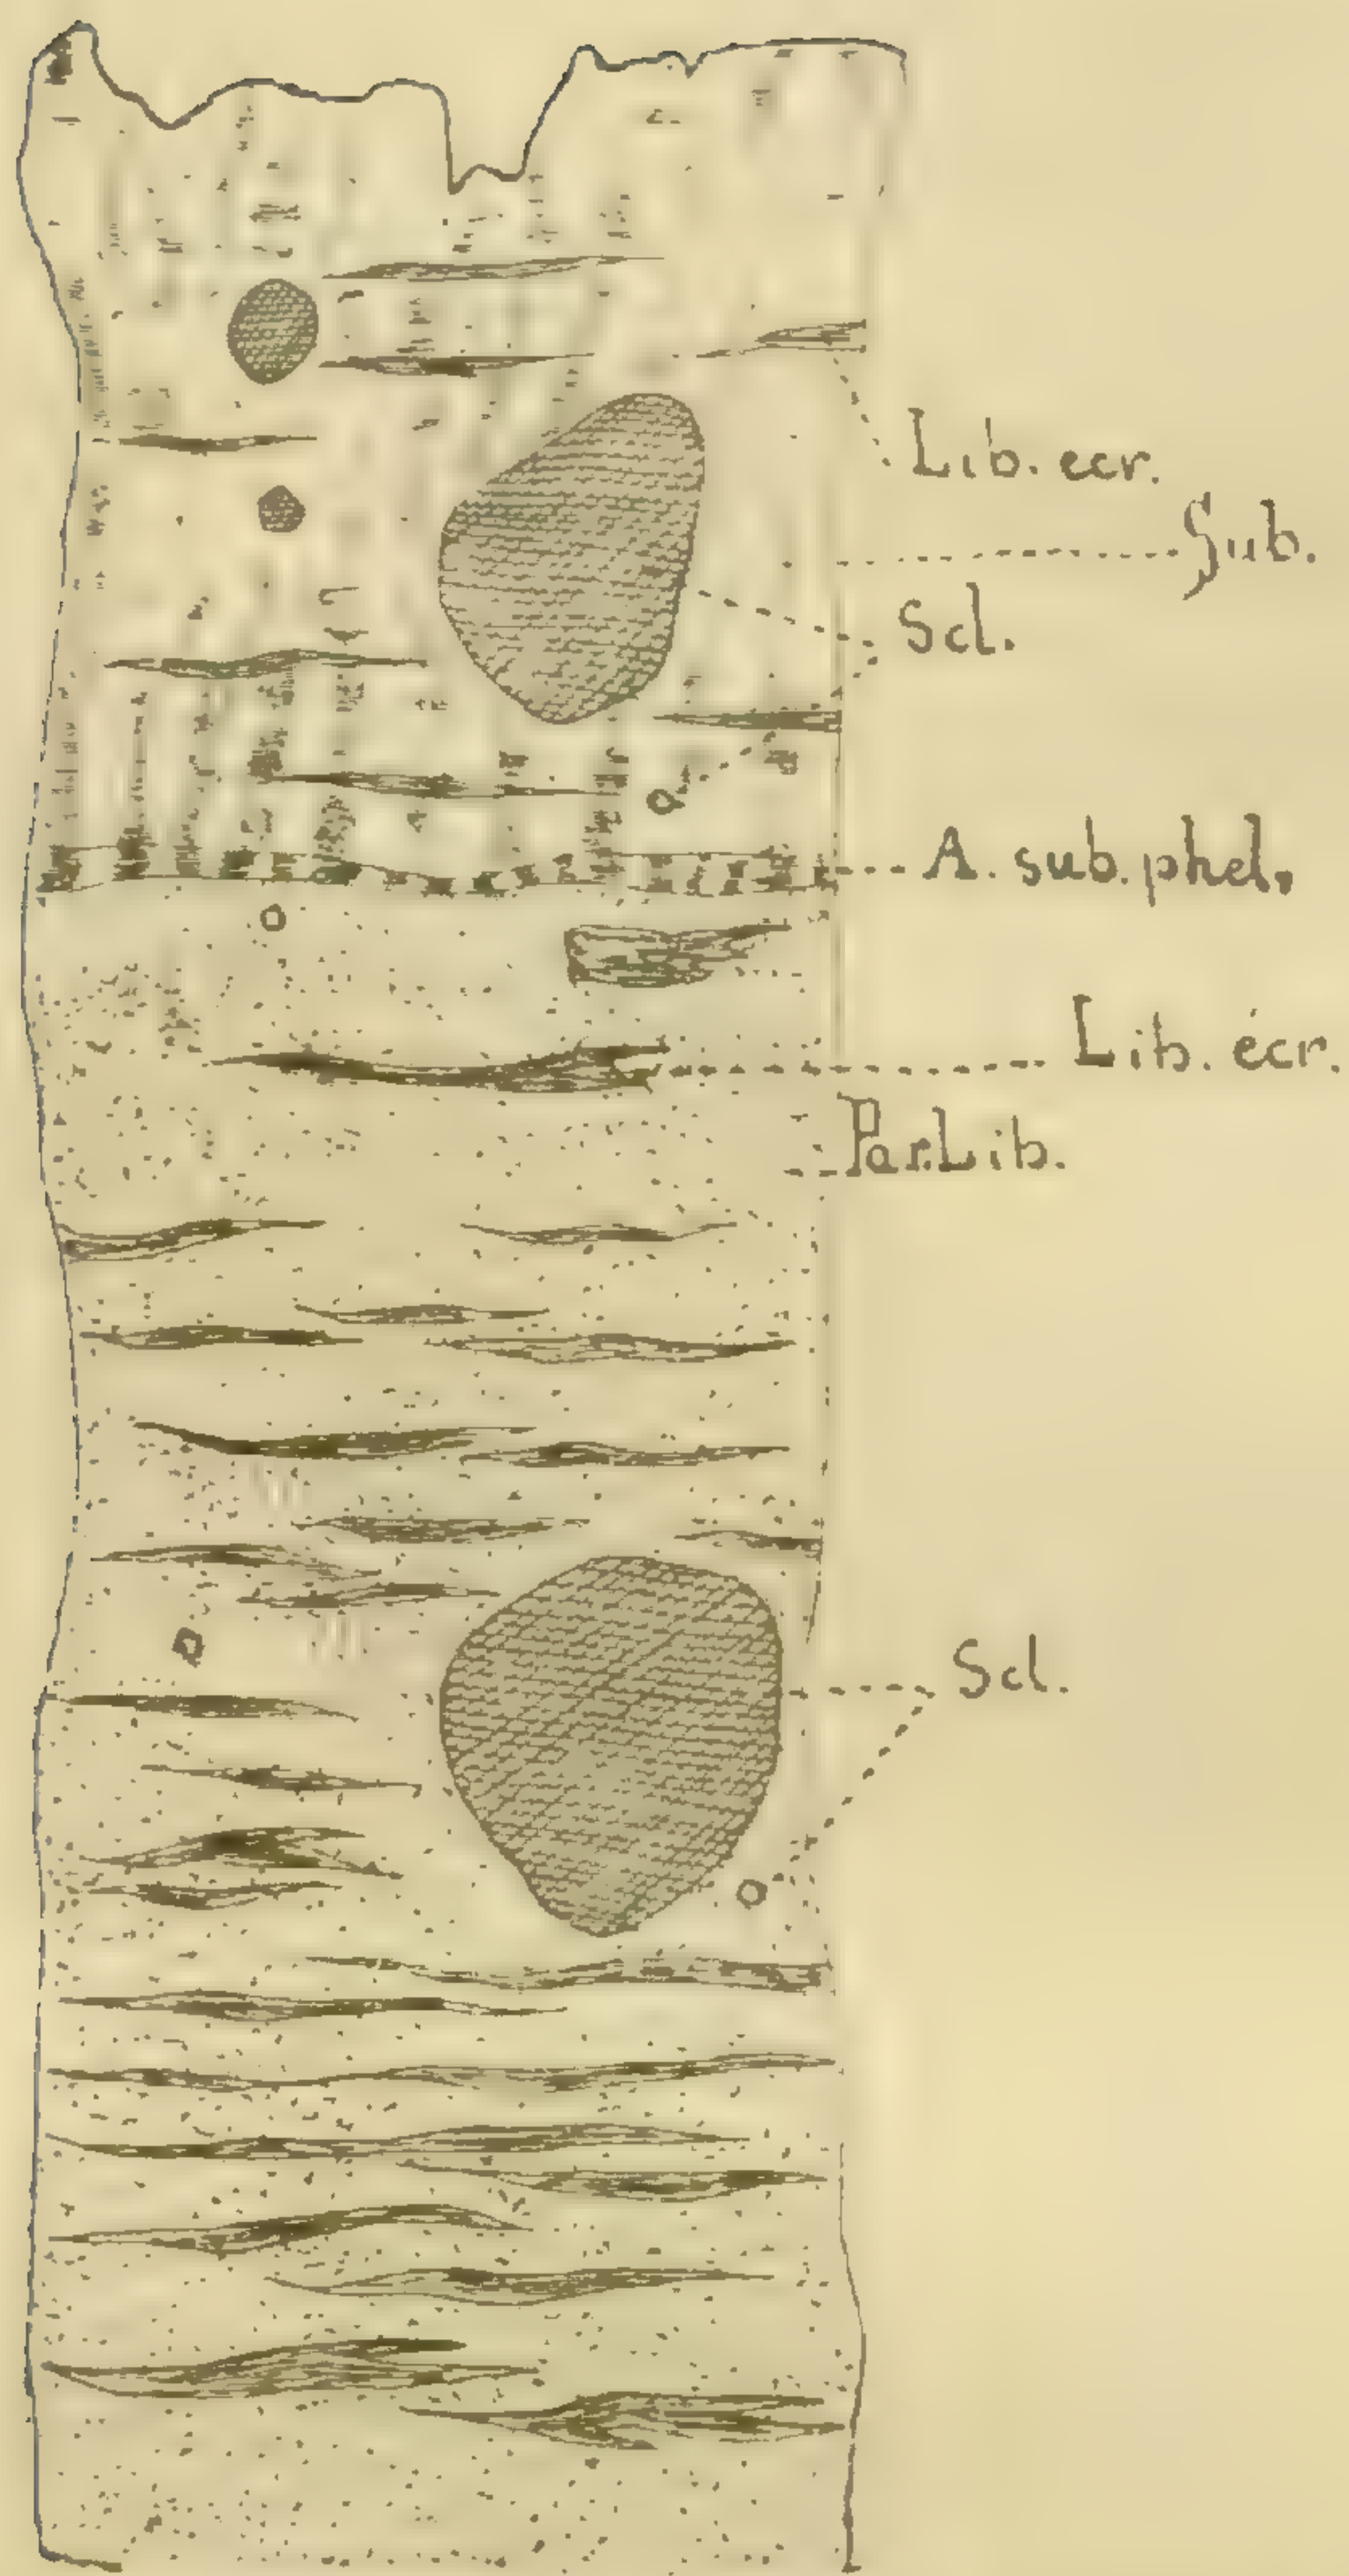 Lib. ecr.
Sub.
Scl.
A. sub. phel.
Lib. écr.
Par.Lib.
Scl.